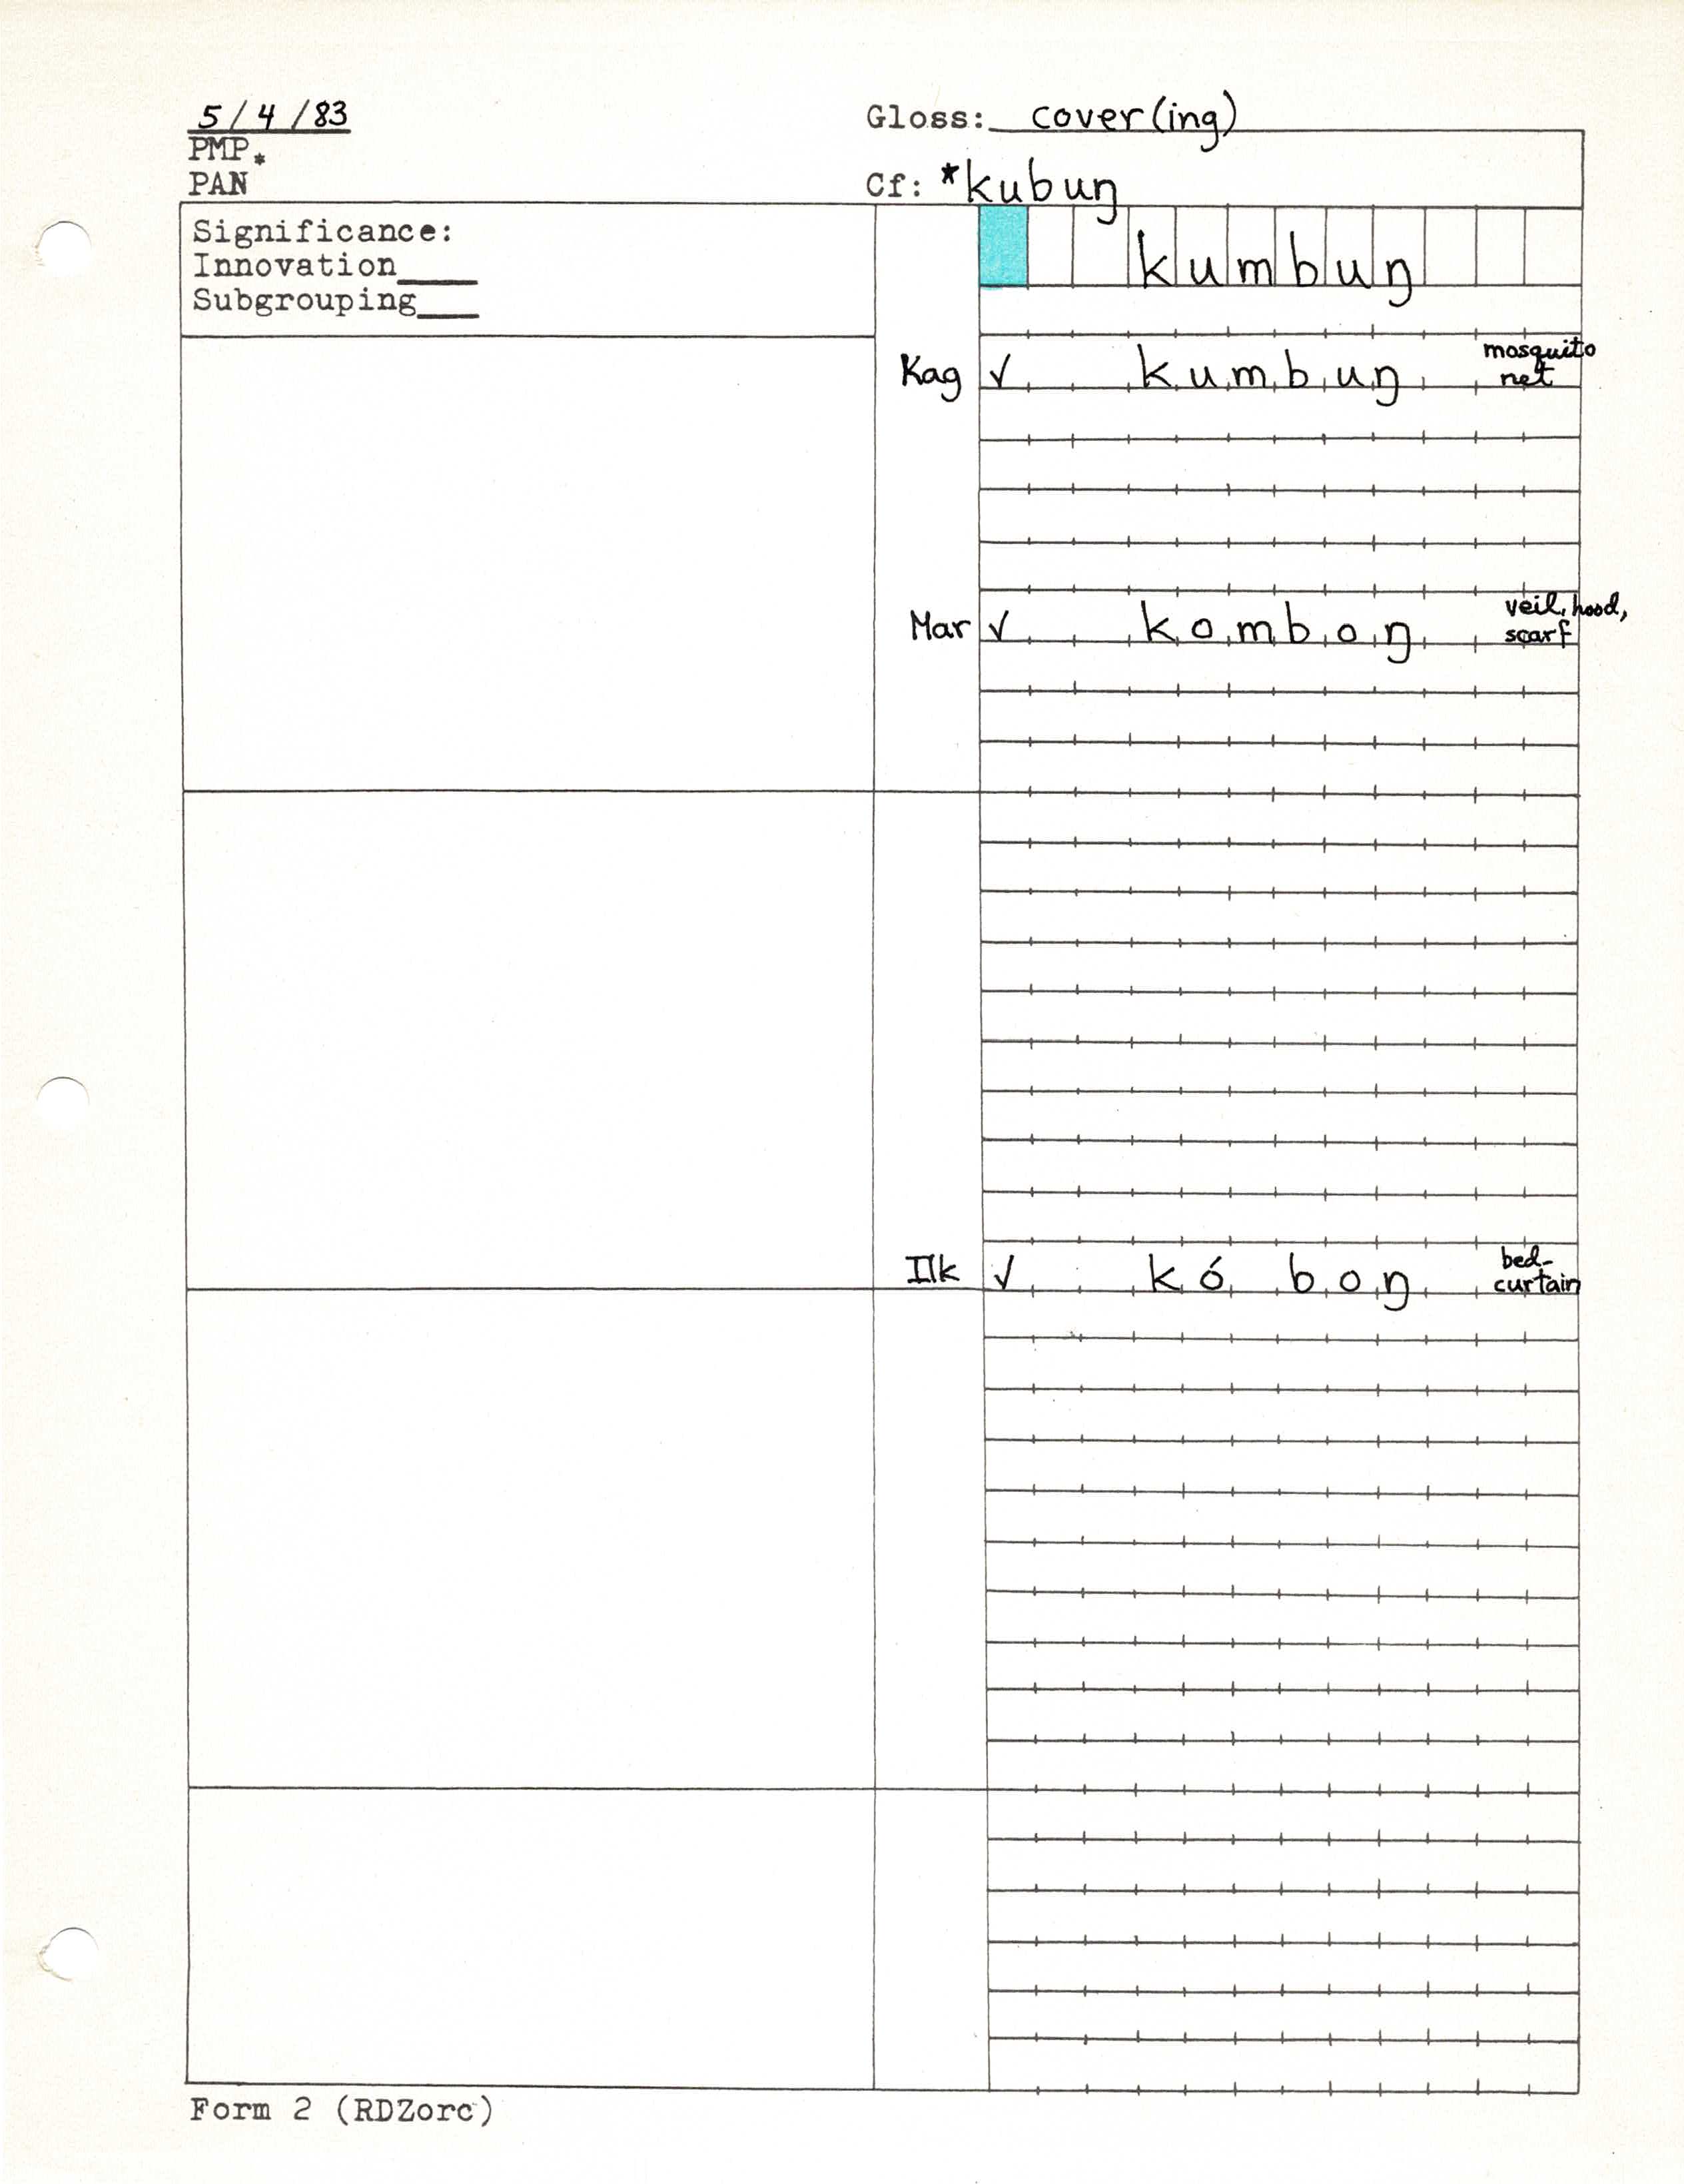 5/4/83 Gloss: cover(ing)
PMP *
PAN Cf: *kubuŋ
Significance:
Innovation____
Subgrouping___
kumbuŋ
Kag ✓ kumbuŋ mosquito
net
Mar ✓ komboŋ veil, hood,
scarf
Ilk ✓ kó boŋ bed-
curtain
Form 2 (RDZorc)